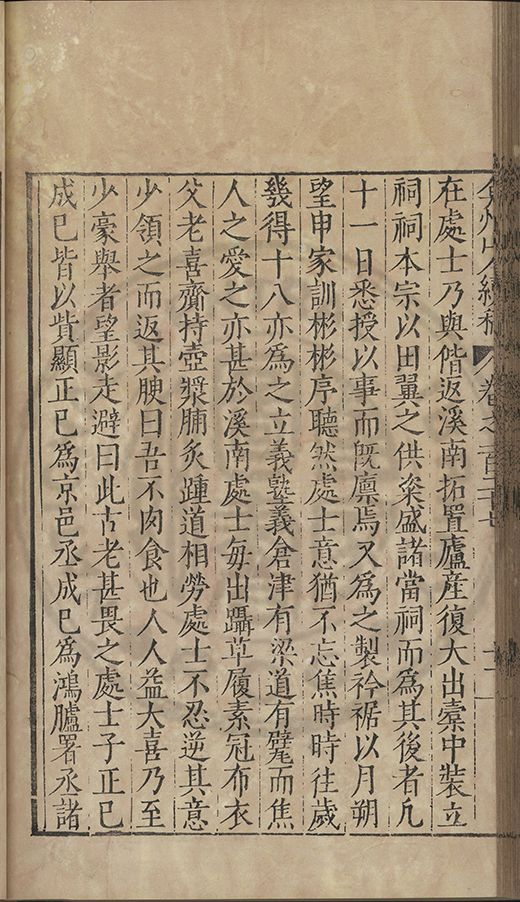 弇州山人續稿 卷之一百二十七 十一
在處士乃與偕返溪南拓置廬産復大出橐中裝立
祠祠本宗以田翼之供粢盛諸當祠而爲其後者凡
十一日悉授以事而旣廪焉又爲之製衿裾以月朔
望申家訓彬彬序聽然處士意猶不忘焦時時往歲
幾得十八亦爲之立義塾義倉津有梁道有甃而焦
人之愛之亦甚於溪南處士每出躡草履素冠布衣
父老喜齎持壺漿脯炙踵道相勞處士不忍逆其意
少領之而返其腴曰吾不肉食也人人益大喜乃至
少豪舉者望影走避曰此古老甚畏之處士子正巳
成巳皆以貲顯正巳爲京邑丞成巳爲鴻臚署丞諸